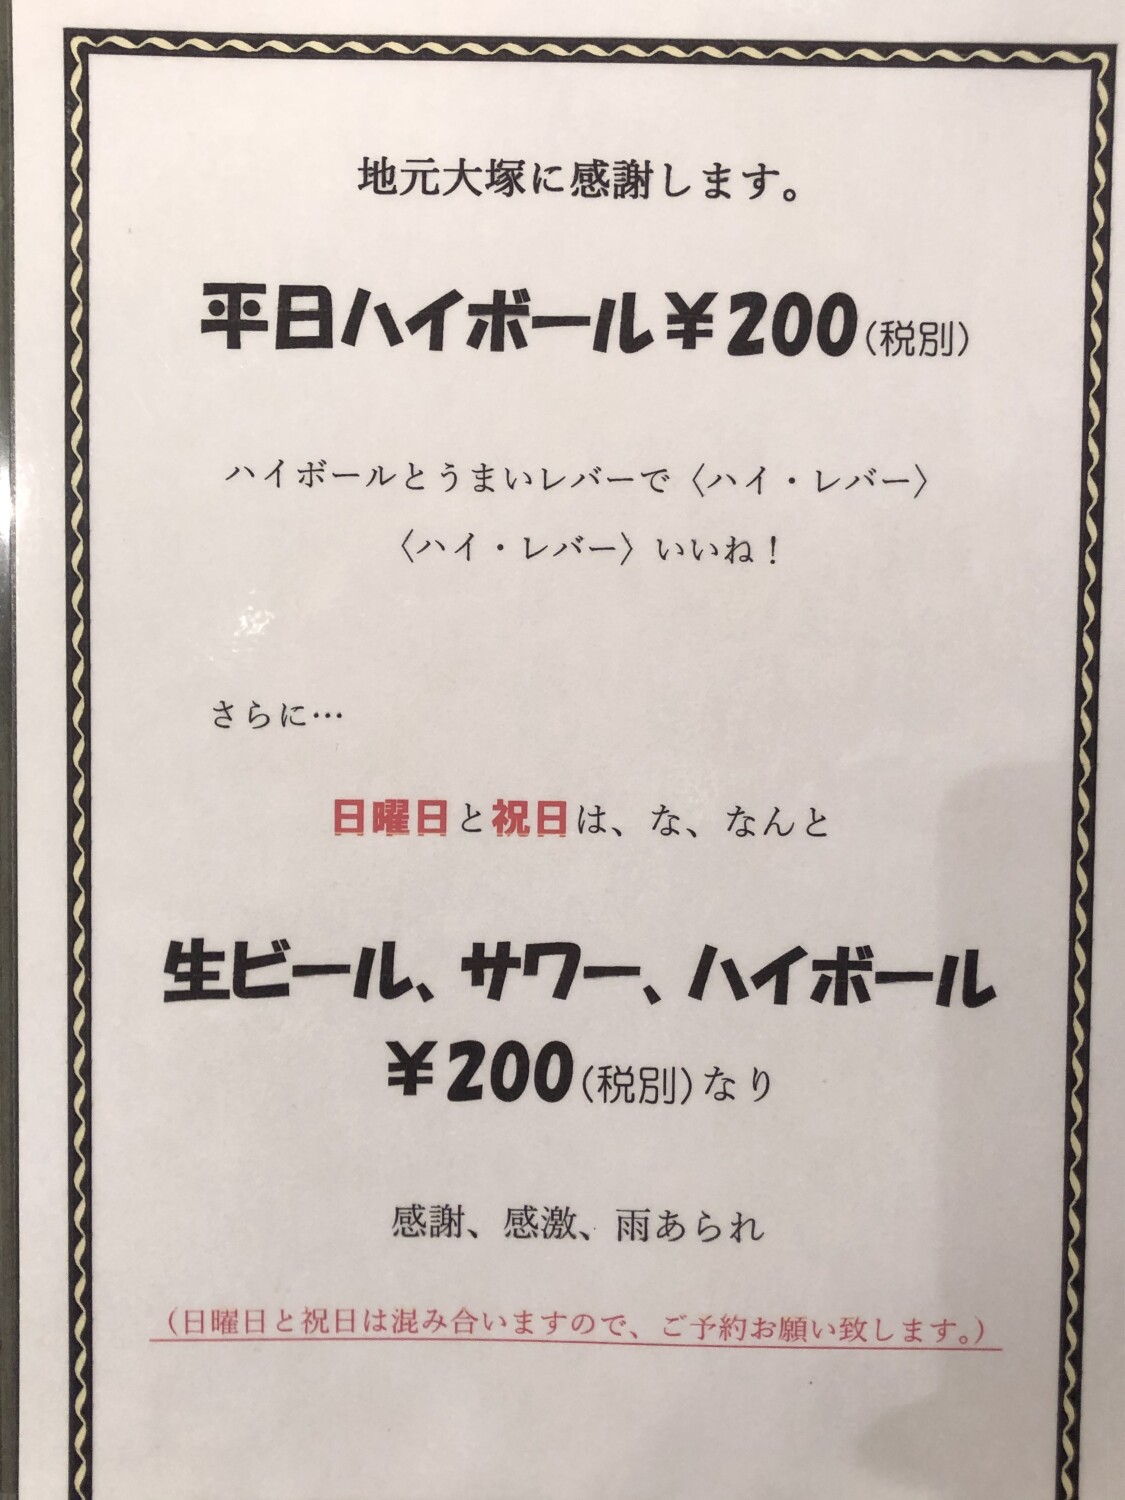 地元大塚に感謝します。
平日ハイボール￥200(税別)
ハイボールとうまいレバーで〈ハイ・レバー〉
〈ハイ・レバー〉いいね！
さらに…
日曜日と祝日は、な、なんと
生ビール、サワー、ハイボール
￥200(税別)なり
感謝、感激、雨あられ
（日曜日と祝日は混み合いますので、ご予約お願い致します。）